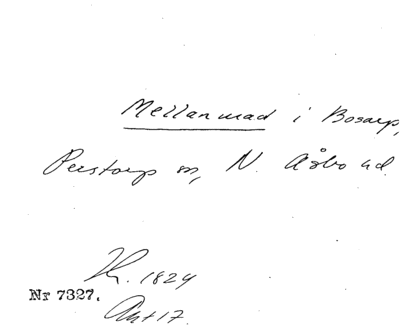 Mellanmad i Bosarp,
Perstorp sn, N. Åsbo hd.
1824
Nr 7327.
Akt 17.